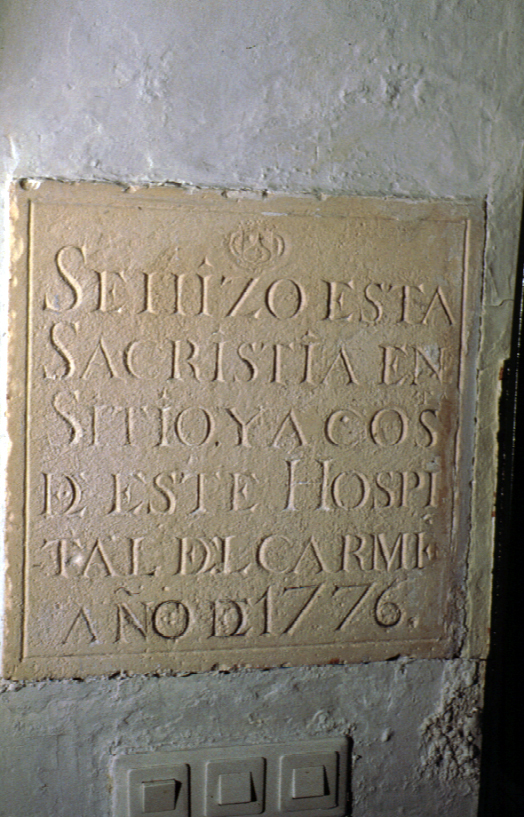 SE HIZO ESTA
SACRISTIA EN
SITIO. Y A COS
DE ESTE HOSPI
TAL DEL CARME
AÑO DE 1776.